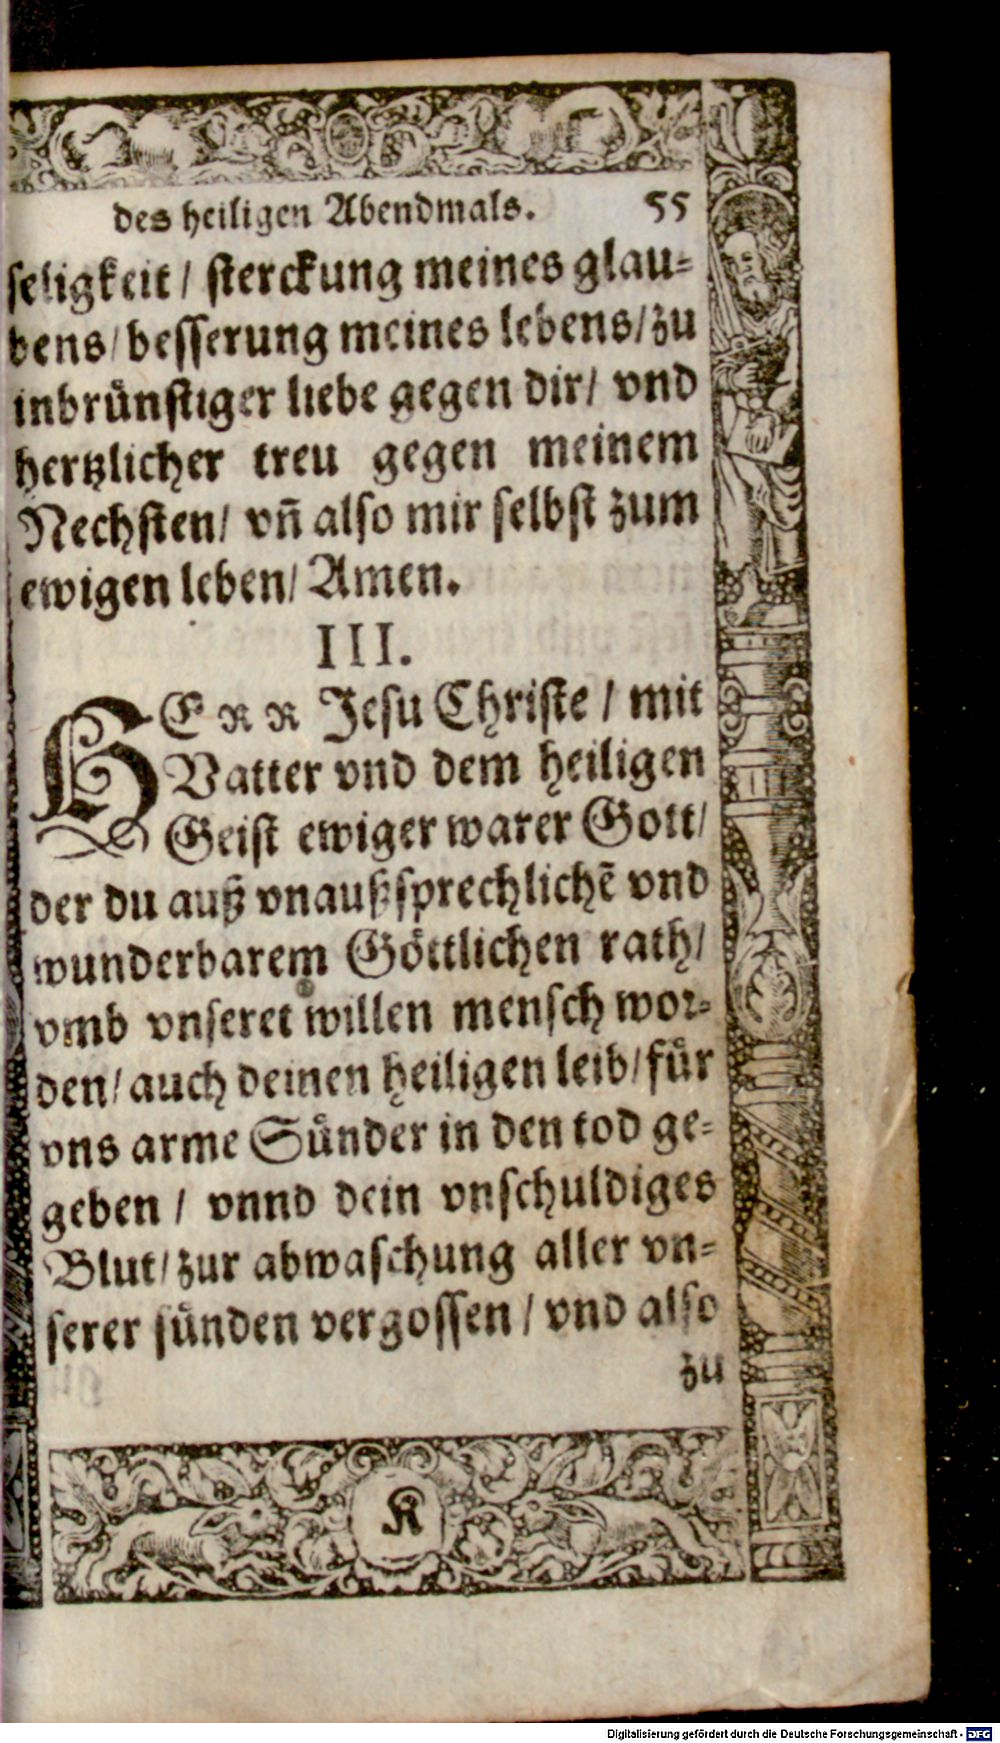 des heiligen Abendmals. 55
seligkeit / sterckung meines glau-
bens / besserung meines lebens / zu
inbrünstiger liebe gegen dir / vnd
hertzlicher treu gegen meinem
Nechsten / vñ also mir selbst zum
ewigen leben / Amen.
III.
HERR Jesu Christe / mit
Vatter vnd dem heiligen
Geist ewiger warer Gott /
der du auß vnaußsprechlichē vnd
wunderbarem Göttlichen rath /
vmb vnseret willen mensch wor-
den / auch deinen heiligen leib / für
vns arme Sünder in den tod ge-
geben / vnnd dein vnschuldiges
Blut / zur abwaschung aller vn-
serer sünden vergossen / vnd also
zu
K
Digitalisierung gefördert durch die Deutsche Forschungsgemeinschaft - DFG